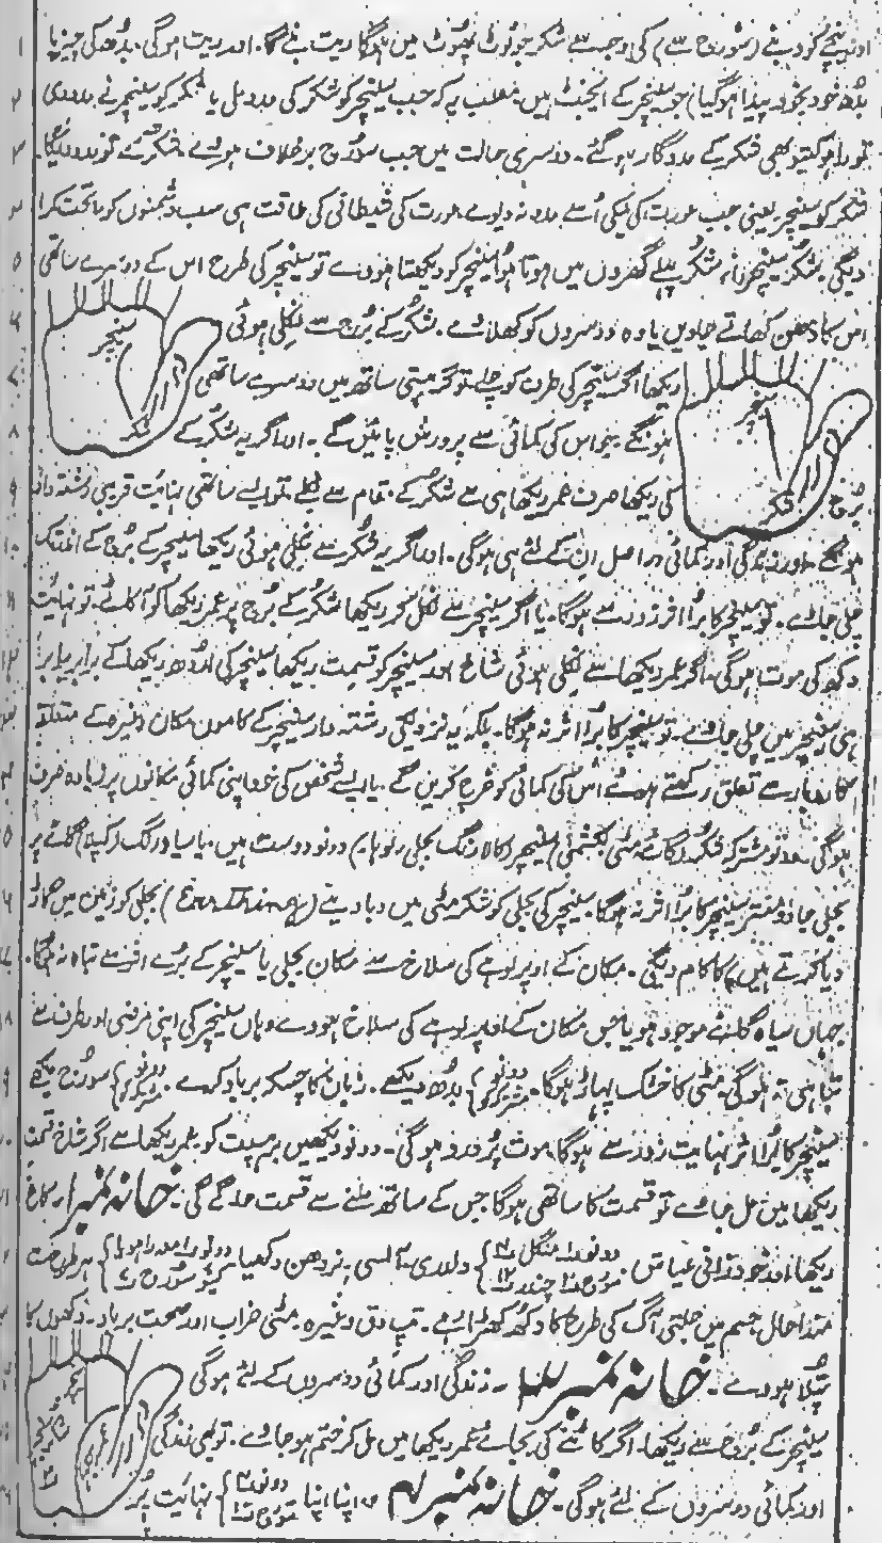 اونچے کود بنے (سورج سے) کی وجہ سے شکر جو ٹوٹ پھوٹ میں ہوگا ریت بنے گا۔ اور ریت ہوگی۔ بدھ کی چیز یا
بدھ خود بخود پیدا ہوگیا) جو سنیچر کے ایجنٹ ہیں۔ مطلب یہ کہ جب سنیچر کو شکر کی مدد ملی یا شکر کو سنیچر نے مدد دی
تو راہو کیتو بھی شکر کے مددگار ہو گئے۔ دوسری حالت میں جب سورج برخلاف ہووے۔ شکر نے تو مدد دیگا۔
شکر کو سنیچر یعنی جب عورت کی نیکی اُسے مدد نہ دیوے عورت کی شیطانی کی طاقت ہی سب دشمنوں کو ماتحت کرا
دیگی۔ شکر سنیچر شکر پہلے گھروں میں ہوتا ہوا سنیچر کو دیکھتا ہووے تو سنیچر کی طرح اس کے دوسرے ساتھی
اس کا دھن کھاتے جاویں یا وہ دوسروں کو کھلاوے۔ شکر کے بُرج سے نکلی ہوئی
ریکھا اگر سنیچر کی طرف کو چلے تو گرہستی ساتھ میں دوسرے ساتھی
ہونگے جو اس کی کمائی سے پرورش پائیں گے۔ اور اگر یہ شکر کے
بُرج کی ریکھا صرف عمر ریکھا ہی سے شکر کے مقام سے نکلے۔ تو ایسے ساتھی نہایت قریبی رشتہ دار
ہونگے۔ اور زندگی اور کمائی دراصل ان کے لئے ہی ہوگی۔ اور اگر یہ شکر سے نکلی ہوئی ریکھا سنیچر کے بُرج کے اندر تک
چلی جاوے۔ تو سنیچر کا بُرا اثر زور سے ہوگا۔ یا اگر سنیچر سے نکل کر ریکھا شکر کے بُرج پر عمر ریکھا کو آ کاٹے۔ تو نہایت
دکھ کی موت ہوگی۔ اگر عمر ریکھا سے نکلی ہوئی شاخ اور سنیچر کو قسمت ریکھا سنیچر کی اردھ ریکھا کے برابر برابر
ہی سنیچر میں چلی جاوے۔ تو سنیچر کا بُرا اثر نہ ہوگا۔ بلکہ یہ نزدیکی رشتہ دار سنیچر کے کاموں مکان وغیرہ کے متعلقہ
کاروبار سے تعلق رکھتے ہوئے اس کی کمائی کو خرچ کریں گے۔ یا ایسے شخص کی خود اپنی کمائی مکانوں پر زیادہ خرچ
ہوگی۔ دونو مشترکہ شکر (گائے مٹی لکشمی) سنیچر (کالا رنگ بجلی لوہا) دونو دوست ہیں۔ یا سیاہ رنگ (کپلا) گائے پر
بجلی جادو منتر سنیچر کا بُرا اثر نہ ہوگا۔ سنیچر کی بجلی کو شکر مٹی میں دبا دینے (Earthing) بجلی کو زمین میں گاڑ
دیا کرتے ہیں) کا کام دیگی۔ مکان کے اوپر لوہے کی سلاخ سے مکان بجلی یا سنیچر کے بُرے اثر سے تباہ نہ ہوگا۔
جہاں سیاہ گائے موجود ہو یا جس مکان کے اوپر لوہے کی سلاخ ہووے وہاں سنیچر کی اپنی مرضی اور طرف سے
تباہی نہ ہوگی۔ مٹی کا خشک پہاڑ ہوگا۔ دونو مشترکہ کو} بدھ دیکھے۔ زبان کا چسکہ برباد کرے۔ دونو مشترکہ کو} سورج دیکھے
سنیچر کا بُرا اثر نہایت زور سے ہوگا موت پُر درد ہوگی۔ دونو دیکھیں برہسپت کو عمر ریکھا سے اگر شاخ قسمت
ریکھا میں مل جاوے تو قسمت کا ساتھی ہوگا جس کے ساتھ ملنے سے قسمت جاگے گی۔ خانہ نمبر ۱ کاغ
ریکھا اور خود ذاتی عیاش۔ دلدری۔ آلسی۔ نردھن دکھیا ہر طرف سے
مندا حال جسم میں جلتی آگ کی طرح کا دکھ کھڑا ہے۔ تپ دق وغیرہ۔ مٹی خراب اور صحت برباد۔ دکھوں کا
پتلا ہووے۔ خانہ نمبر ۔ زندگی اور کمائی دوسروں کے لئے ہوگی
سنیچر کے بُرج سے ریکھا۔ اگر کاٹنے کی بجائے عمر ریکھا میں مل کر ختم ہو جاوے۔ تو بھی زندگی
اور کمائی دوسروں کے لئے ہوگی۔ خانہ نمبر ۴ اپنا اپنا نہایت پُر
سنیچر
شکر
سنیچر
شکر